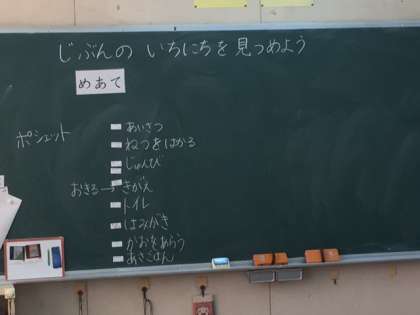 じぶんの いちにちを 見つめよう
めあて
ポシェット
あいさつ
ねつをはかる
じゅんび
おきる→きがえ
トイレ
はみがき
かおをあらう
あさごはん